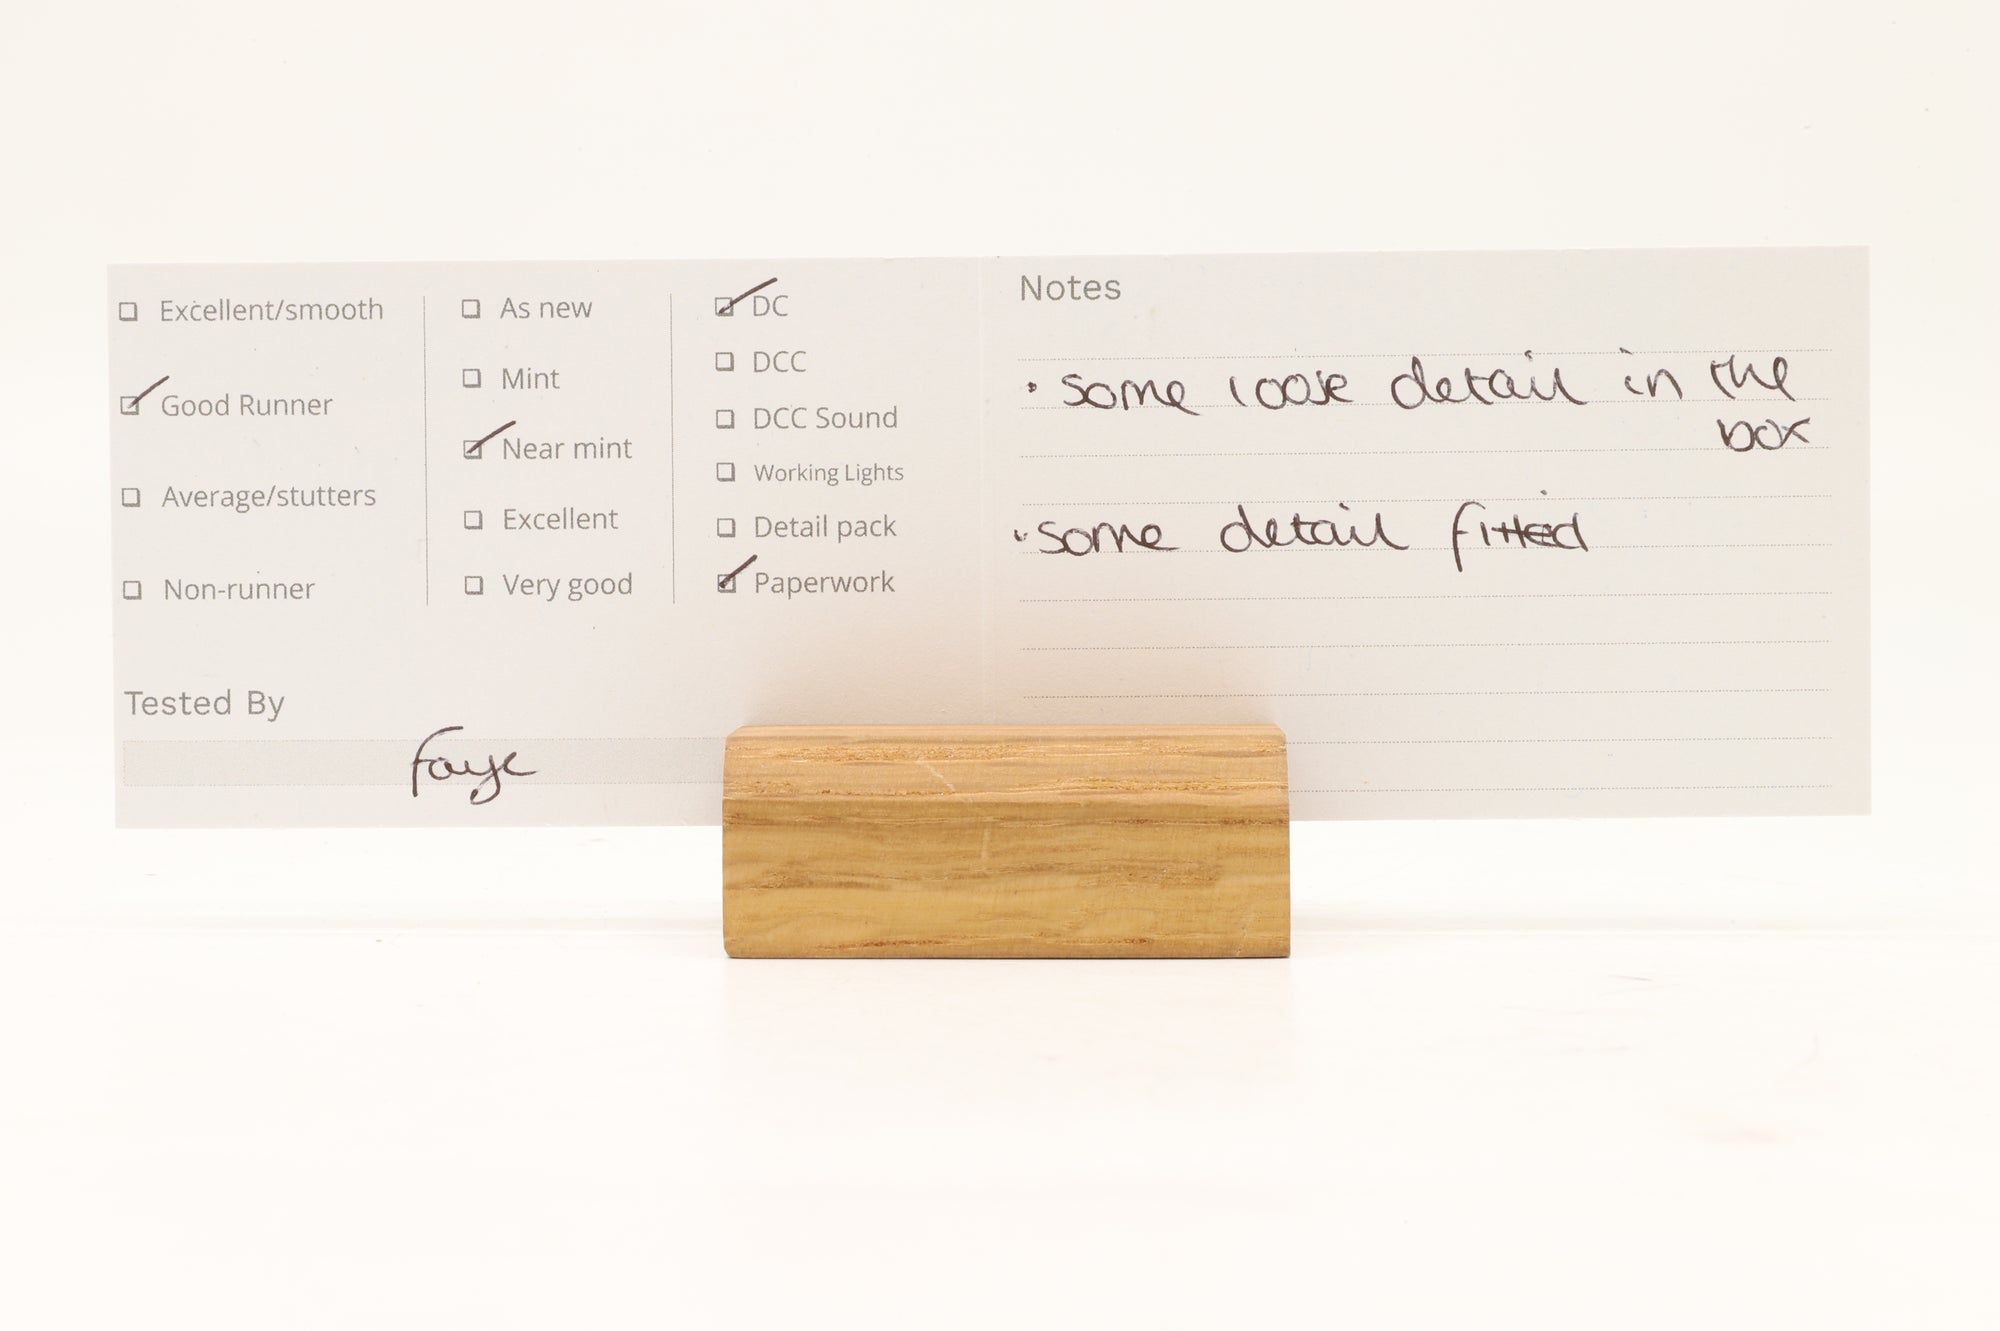 Excellent/smooth
Good Runner
Average/stutters
Non-runner
As new
Mint
Near mint
Excellent
Very good
DC
DCC
DCC Sound
Working Lights
Detail pack
Paperwork
Tested By
Faye
Notes
• some loose detail in the
box
• some detail fitted